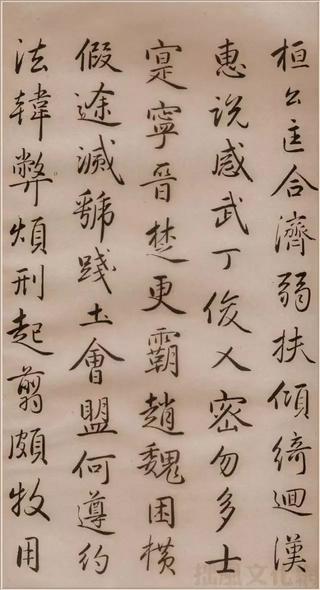 桓公匡合濟弱扶傾綺迴漢
惠说感武丁俊乂密勿多士
寔寧晉楚更霸趙魏困橫
假途滅虢踐土會盟何遵約
法韓弊煩刑起翦頗牧用
拙風文化網